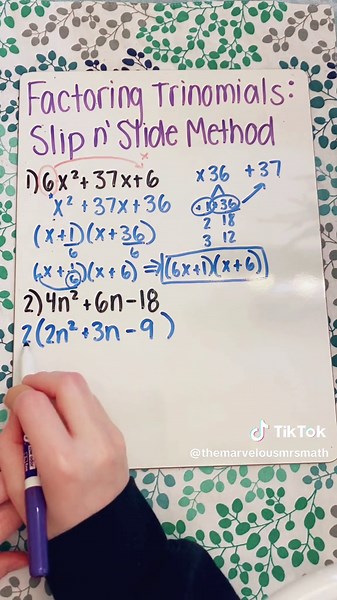 Factoring Trinomials:
Slip n' Slide Method
1) 6x² + 37x + 6
x36 +37
x² + 37x + 36
+1 +36
2 18
3 12
(x + 1/6)(x + 36/6)
(x + 1/6)(x + 6) ⇒ (6x+1)(x+6)
2) 4n² + 6n - 18
2(2n² + 3n - 9)
TikTok
@themarvelousmrsmath